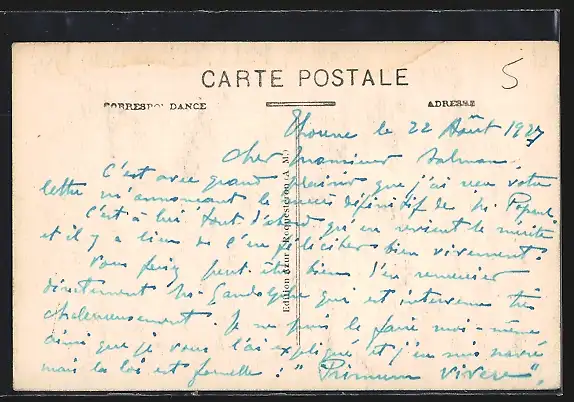 CARTE POSTALE
5
CORRESPONDANCE
ADRESSE
Edition Azur - Roquesteron (A. M.)
le 22 Août 1927
Cher Monsieur
C'est avec grand plaisir que j'ai reçu votre
lettre m'annonçant le succès définitif de Mr
C'est à lui tout d'abord qu'en revient le mérite
et il y a lieu de l'en féliciter bien vivement.
Vous feriez peut être bien d'en remercier
directement Mr qui est intervenu très
chaleureusement. Je ne puis le faire moi-même
ainsi que je vous l'ai expliqué et j'en suis navré
mais la loi est formelle : "Primum vivere".